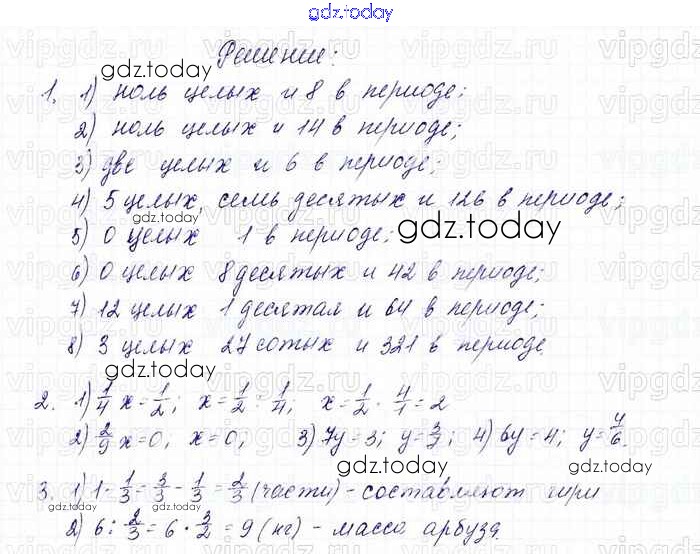 gdz.today
Решение:
gdz.today
1. 1) ноль целых и 8 в периоде;
2) ноль целых и 14 в периоде;
3) две целых и 6 в периоде;
4) 5 целых, семь десятых и 126 в периоде;
gdz.today
5) 0 целых 1 в периоде; gdz.today
6) 0 целых 8 десятых и 42 в периоде;
7) 12 целых 1 десятая и 64 в периоде;
8) 3 целых 27 сотых и 321 в периоде
2. 1) 1/4 x = 1/2; x = 1/2 : 1/4; x = 1/2 · 4/1 = 2
2) 2/9 x = 0; x = 0; 3) 7y = 3; y = 3/7; 4) 6y = 4; y = 4/6.
gdz.today gdz.today
3. 1) 1 - 1/3 = 3/3 - 1/3 = 2/3 (части) - составляют гири
gdz.today
2) 6 : 2/3 = 6 · 3/2 = 9 (кг) - масса арбуза.
gdz.today